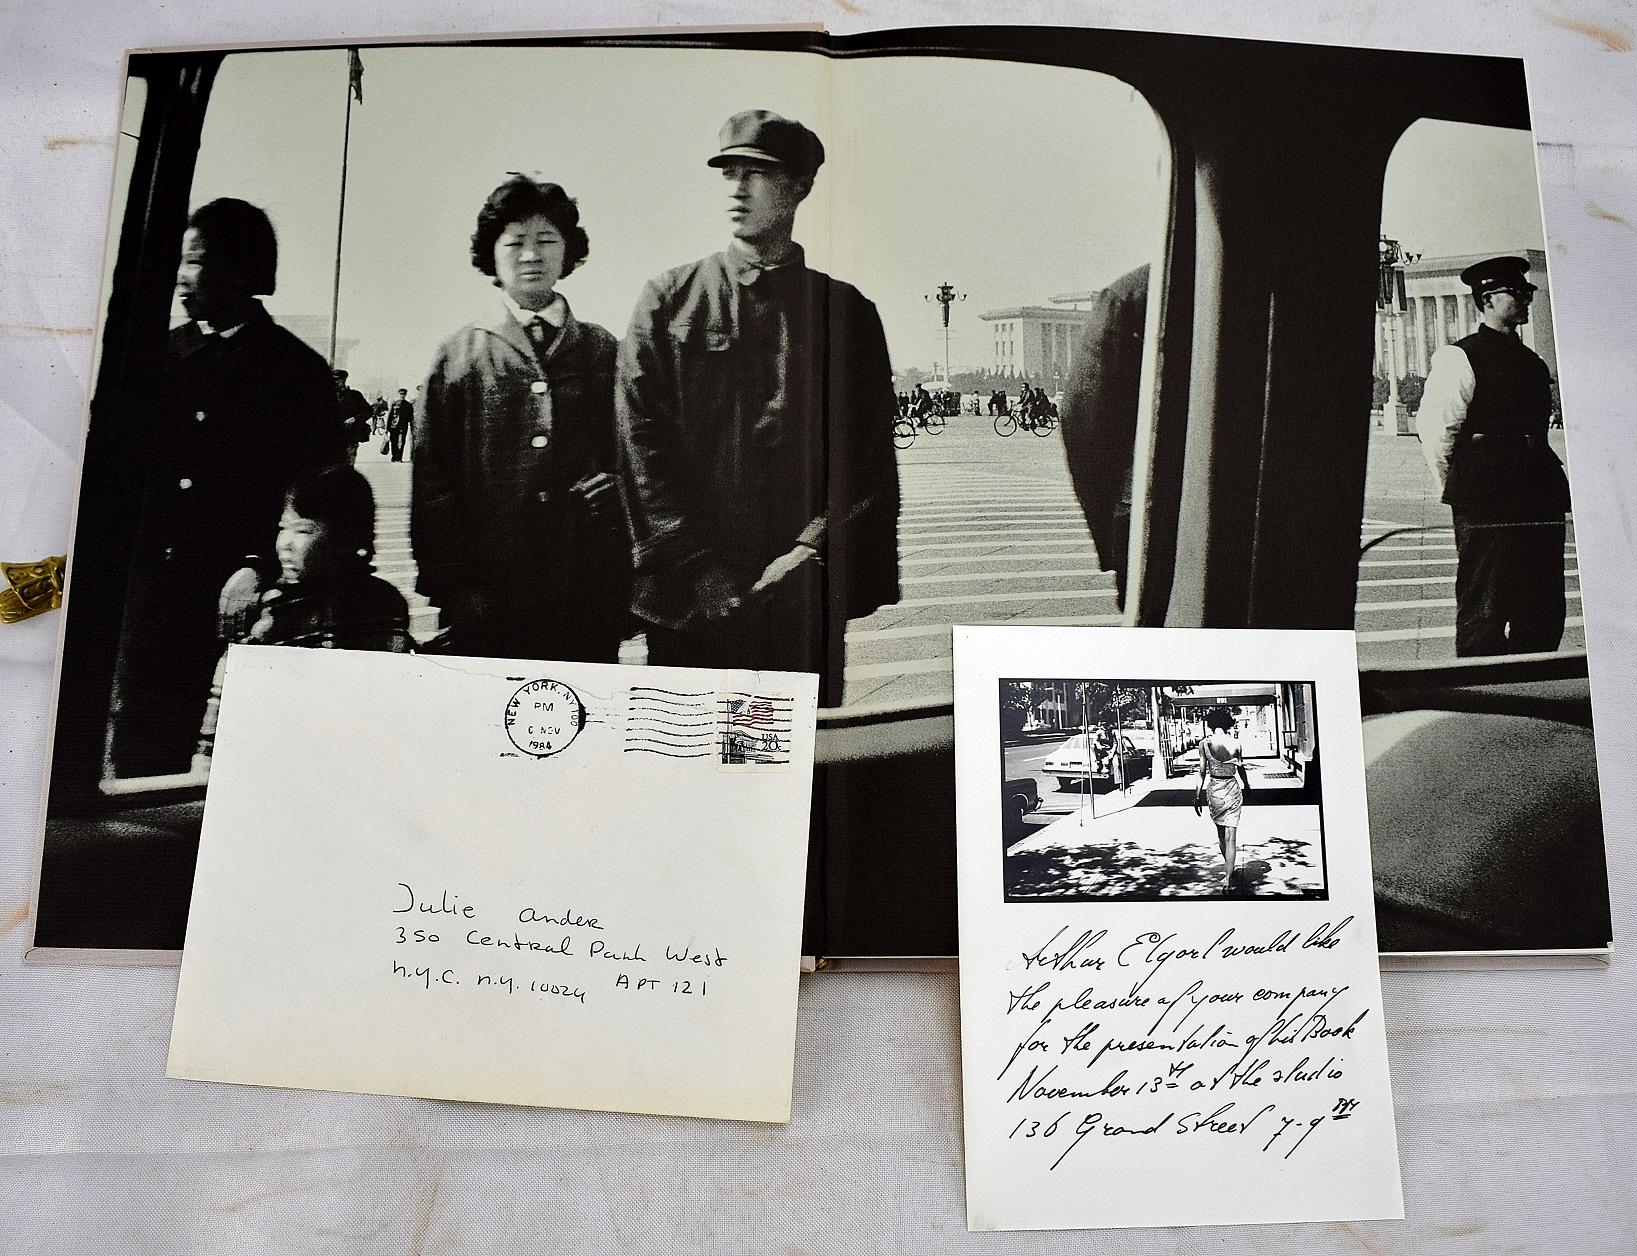 NEW YORK, NY 100
PM
6 NOV
1984
USA
20c
Julie Ander
350 Central Park West
N.Y.C. N.Y. 10024 APT 121
Arthur Elgort would like
the pleasure of your company
for the presentation of his Book
November 13th at the studio
136 Grand Street 7-9 PM